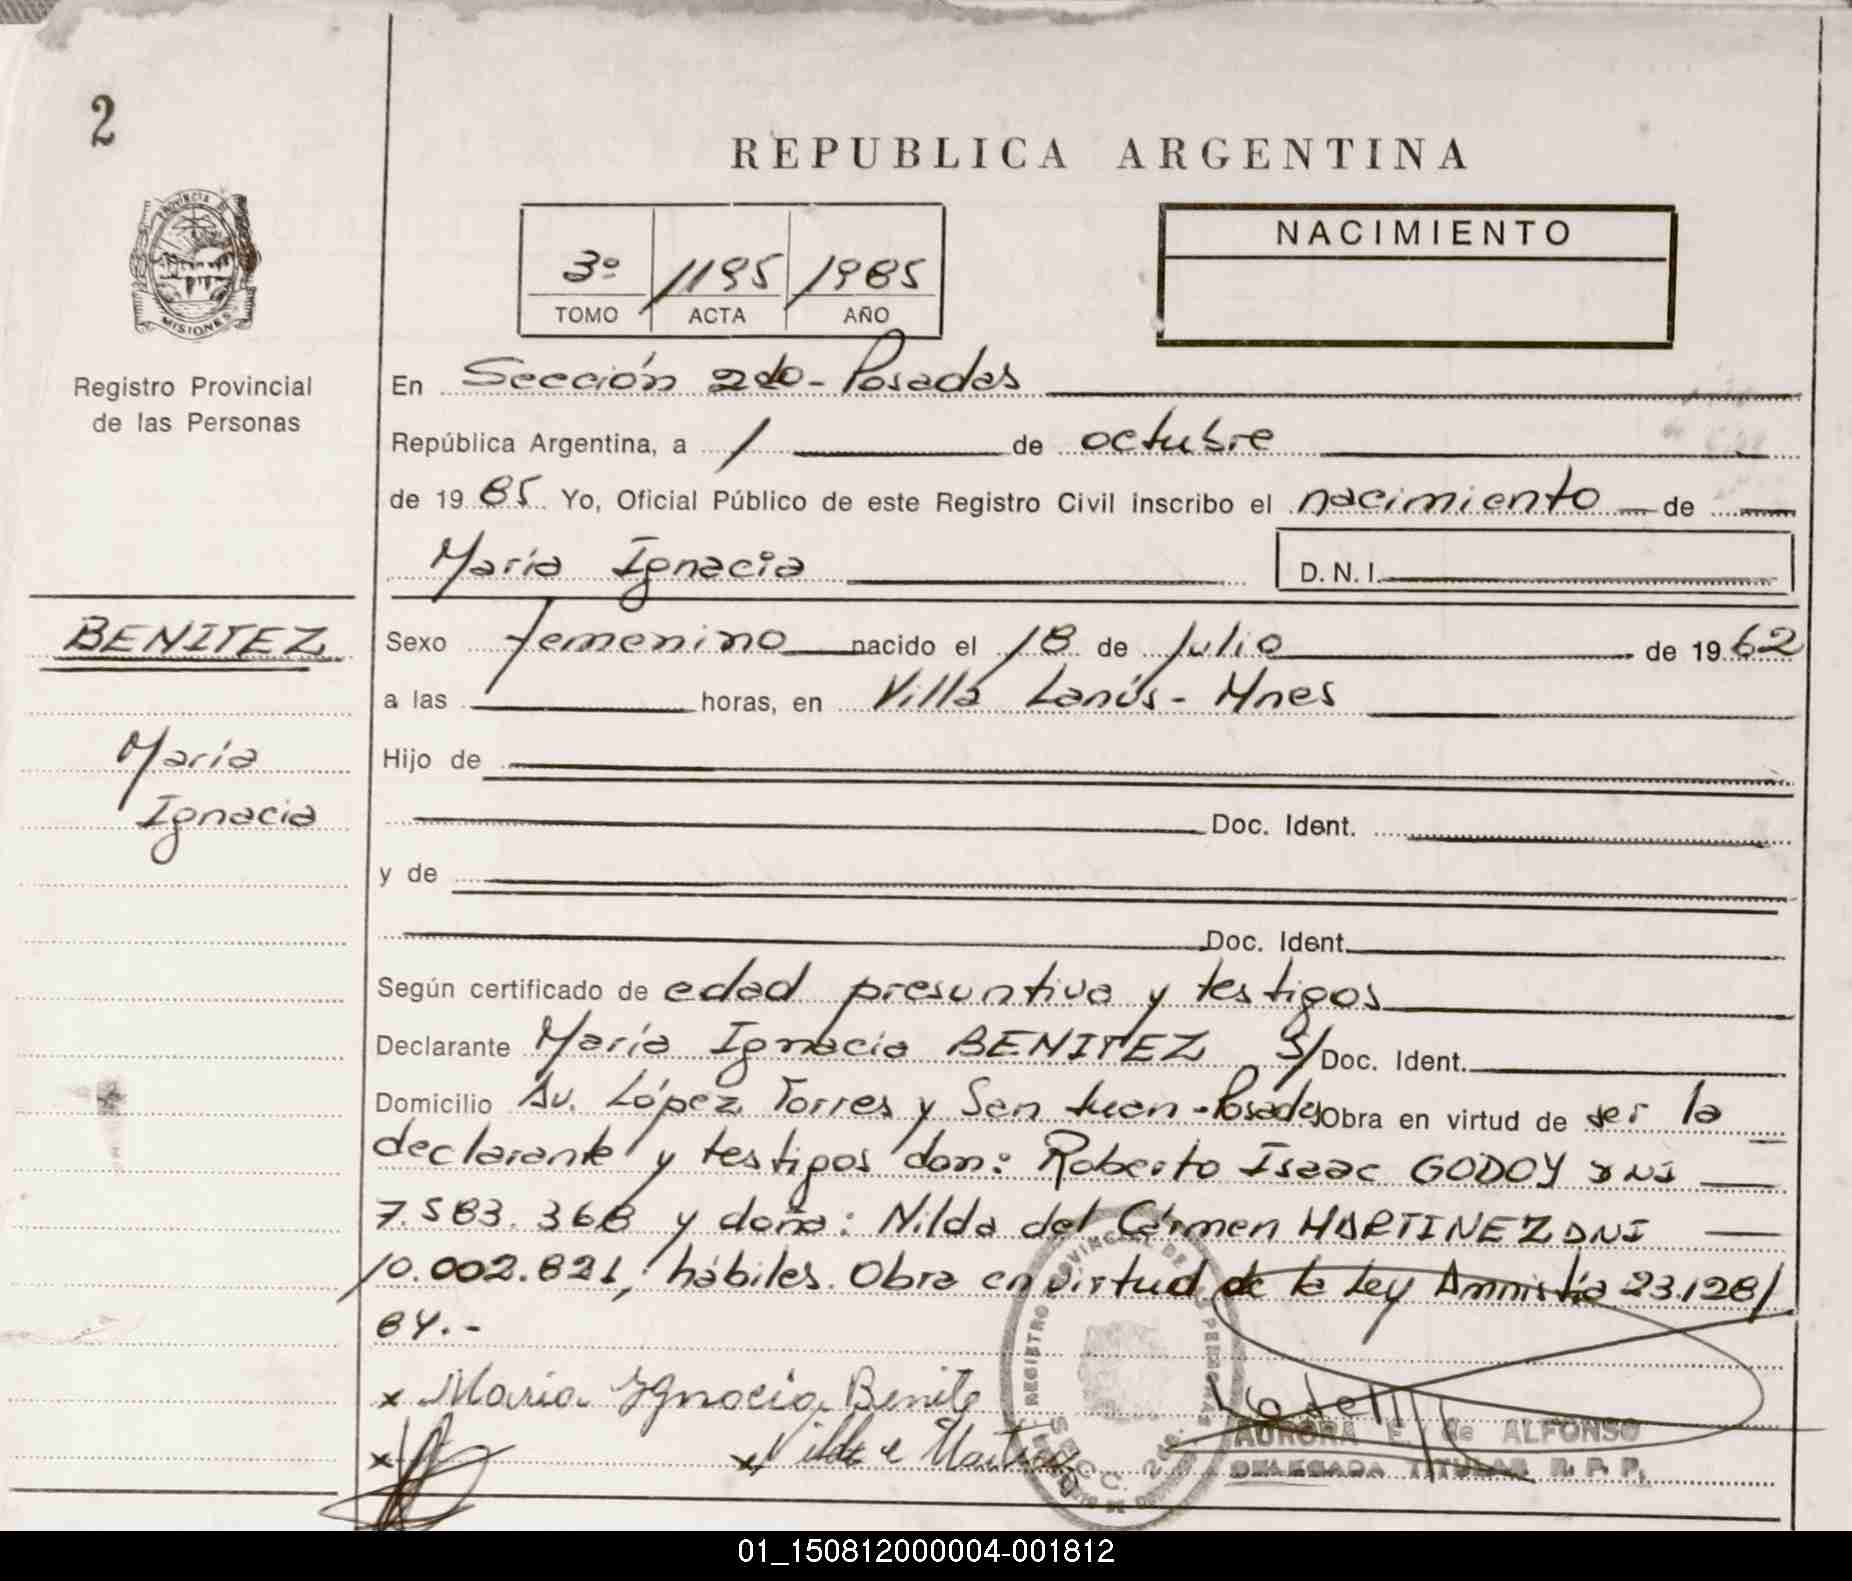 2
REPUBLICA ARGENTINA
PROVINCIA DE
MISIONES
3º 1195 1985
TOMO ACTA AÑO
NACIMIENTO
Registro Provincial
de las Personas
En Sección 2do - Posadas
República Argentina, a 1 de octubre
de 1985 Yo, Oficial Público de este Registro Civil inscribo el nacimiento de
María Ignacia D.N.I.
BENITEZ
María
Ignacia
Sexo femenino nacido el 18 de Julio de 1962
a las horas, en Villa Lanús - Mnes
Hijo de
Doc. Ident.
y de
Doc. Ident.
Según certificado de edad presuntiva y testigos
Declarante María Ignacia BENITEZ S/Doc. Ident.
Domicilio Av. López Torres y San Juan - Posadas Obra en virtud de ser la
declarante y testigos don: Roberto Isaac GODOY DNI
7.583.368 y doña: Nilda del Cármen MARTINEZ DNI
10.002.821, hábiles. Obra en virtud de la Ley Amnistía 23.128/
84.-
x Maria Ignacia Benite
x x
REGISTRO PROVINCIAL DE LAS PERSONAS
SECC. 2da.
AURORA E. de ALFONSO
DELEGADA TITULAR R. P. P.
01_150812000004-001812